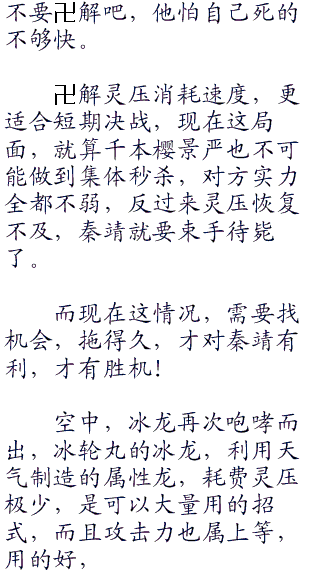 不要卍解吧，他怕自己死的
不够快。
卍解灵压消耗速度，更
适合短期决战，现在这局
面，就算千本樱景严也不可
能做到集体秒杀，对方实力
全都不弱，反过来灵压恢复
不及，秦靖就要束手待毙
了。
而现在这情况，需要找
机会，拖得久，才对秦靖有
利，才有胜机！
空中，冰龙再次咆哮而
出，冰轮丸的冰龙，利用天
气制造的属性龙，耗费灵压
极少，是可以大量用的招
式，而且攻击力也属上等，
用的好，